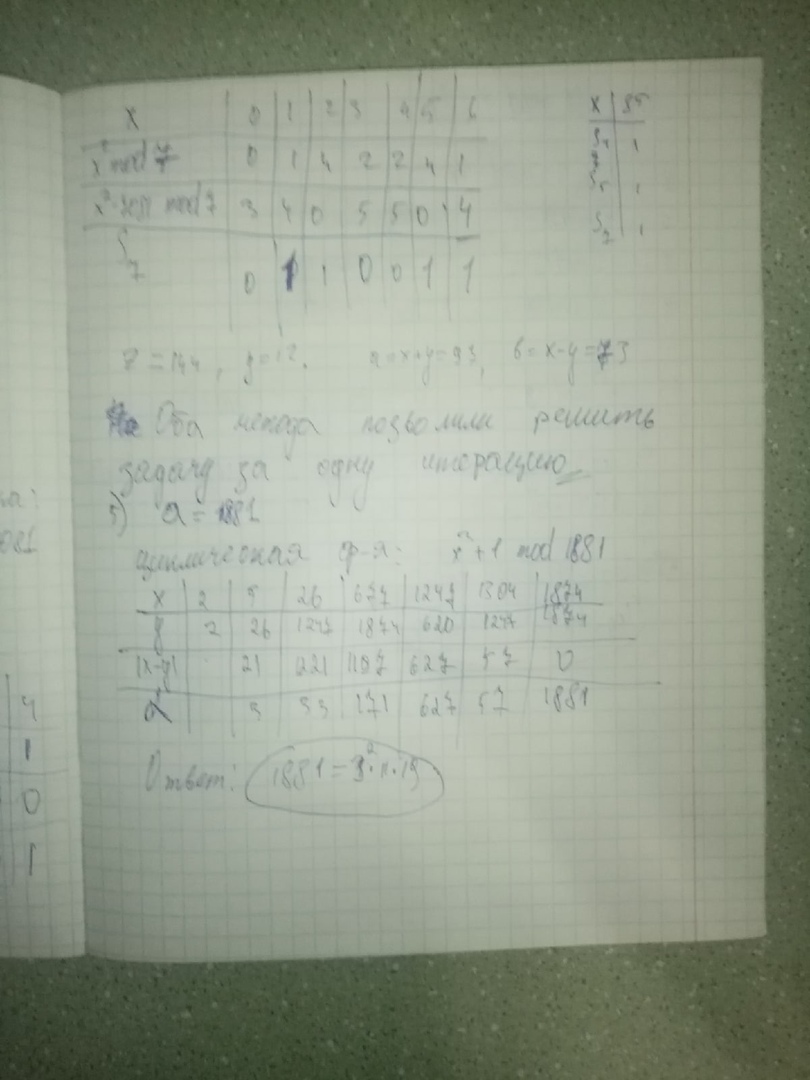 X 0 1 2 3 4 5 6
x² mod 7 0 1 4 2 2 4 1
x²-7081 mod 7 3 4 0 5 5 0 4
S₇ 0 1 1 0 0 1 1
X 85
1
S₅ 1
S₇ 1
z = 144, y = 12. a = x+y = 93, b = x-y = 73
Оба метода позволили решить
задачу за одну итерацию
5) a = 1881
циклическая ф-я: x²+1 mod 1881
X 2 5 26 677 1247 1304 1874
y 2 26 1247 1874 620 1247 1874
|x-y| 21 221 1197 627 57 0
d 3 33 171 627 57 1881
Ответ: 1881 = 3²·11·19
081
4
1
0
1